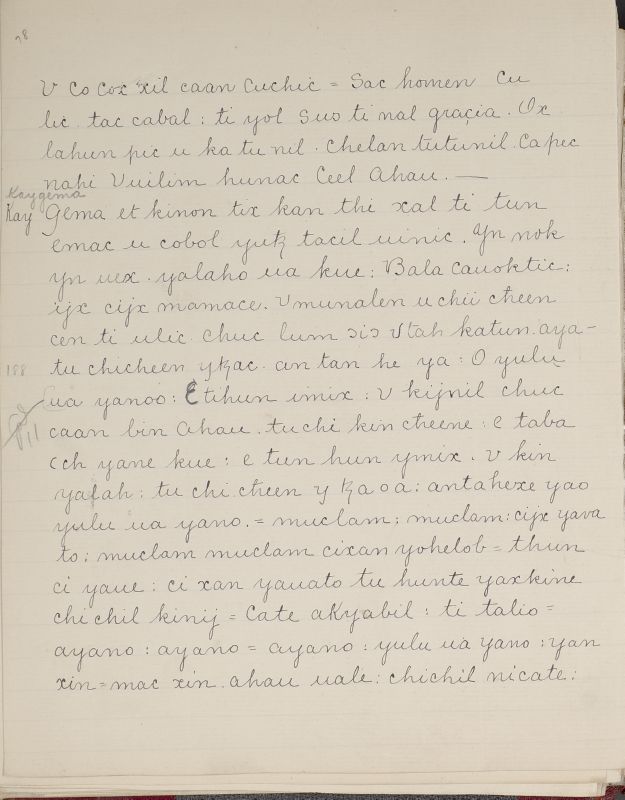 28
V Co Cox xil caan Cuchic = Sac homen Cu
lic. tac cabal : ti yol suo ti nal graçia. Ox
lahun pic u ka tu nil. Chelan tutunil. Capec
nahi Vuilim hunac Ceel Ahau. —
Kaygema
Kay Gema et kinon tix kan thi xal ti tun
emac u cobol yutz tacil uinic. Yn nok
yn uex. yalaho ua kue: Bala Cauoktic:
ijx cijx mamace. Vmunalen u chii cheen
cen ti ulic. Chuc lum ɔiɔ Vtah katun. aya-
tu chicheen yꜩac. an tan he ya : O yulu
188
ua yanoo: Etihun imix : V kijnil chuc
caan bin Ahau. tuchi kin cheene : e taba
cch yane kue : e tun hun ymix. V kin
yalah : tu chi cheen y ꜩa o a : antahexe yao
yulu ua yano. = muclam; muclam: cijx yava
to; muclam muclam cixan yohelob = thun
ci yaue : ci xan yauato tu hunte yaxkine
chi chil kinij = Cate akyabil : ti talio =
ayano : ayano = ayano : yulu ua yano : yan
xin = mac xin. ahau uale : chichil nicate :